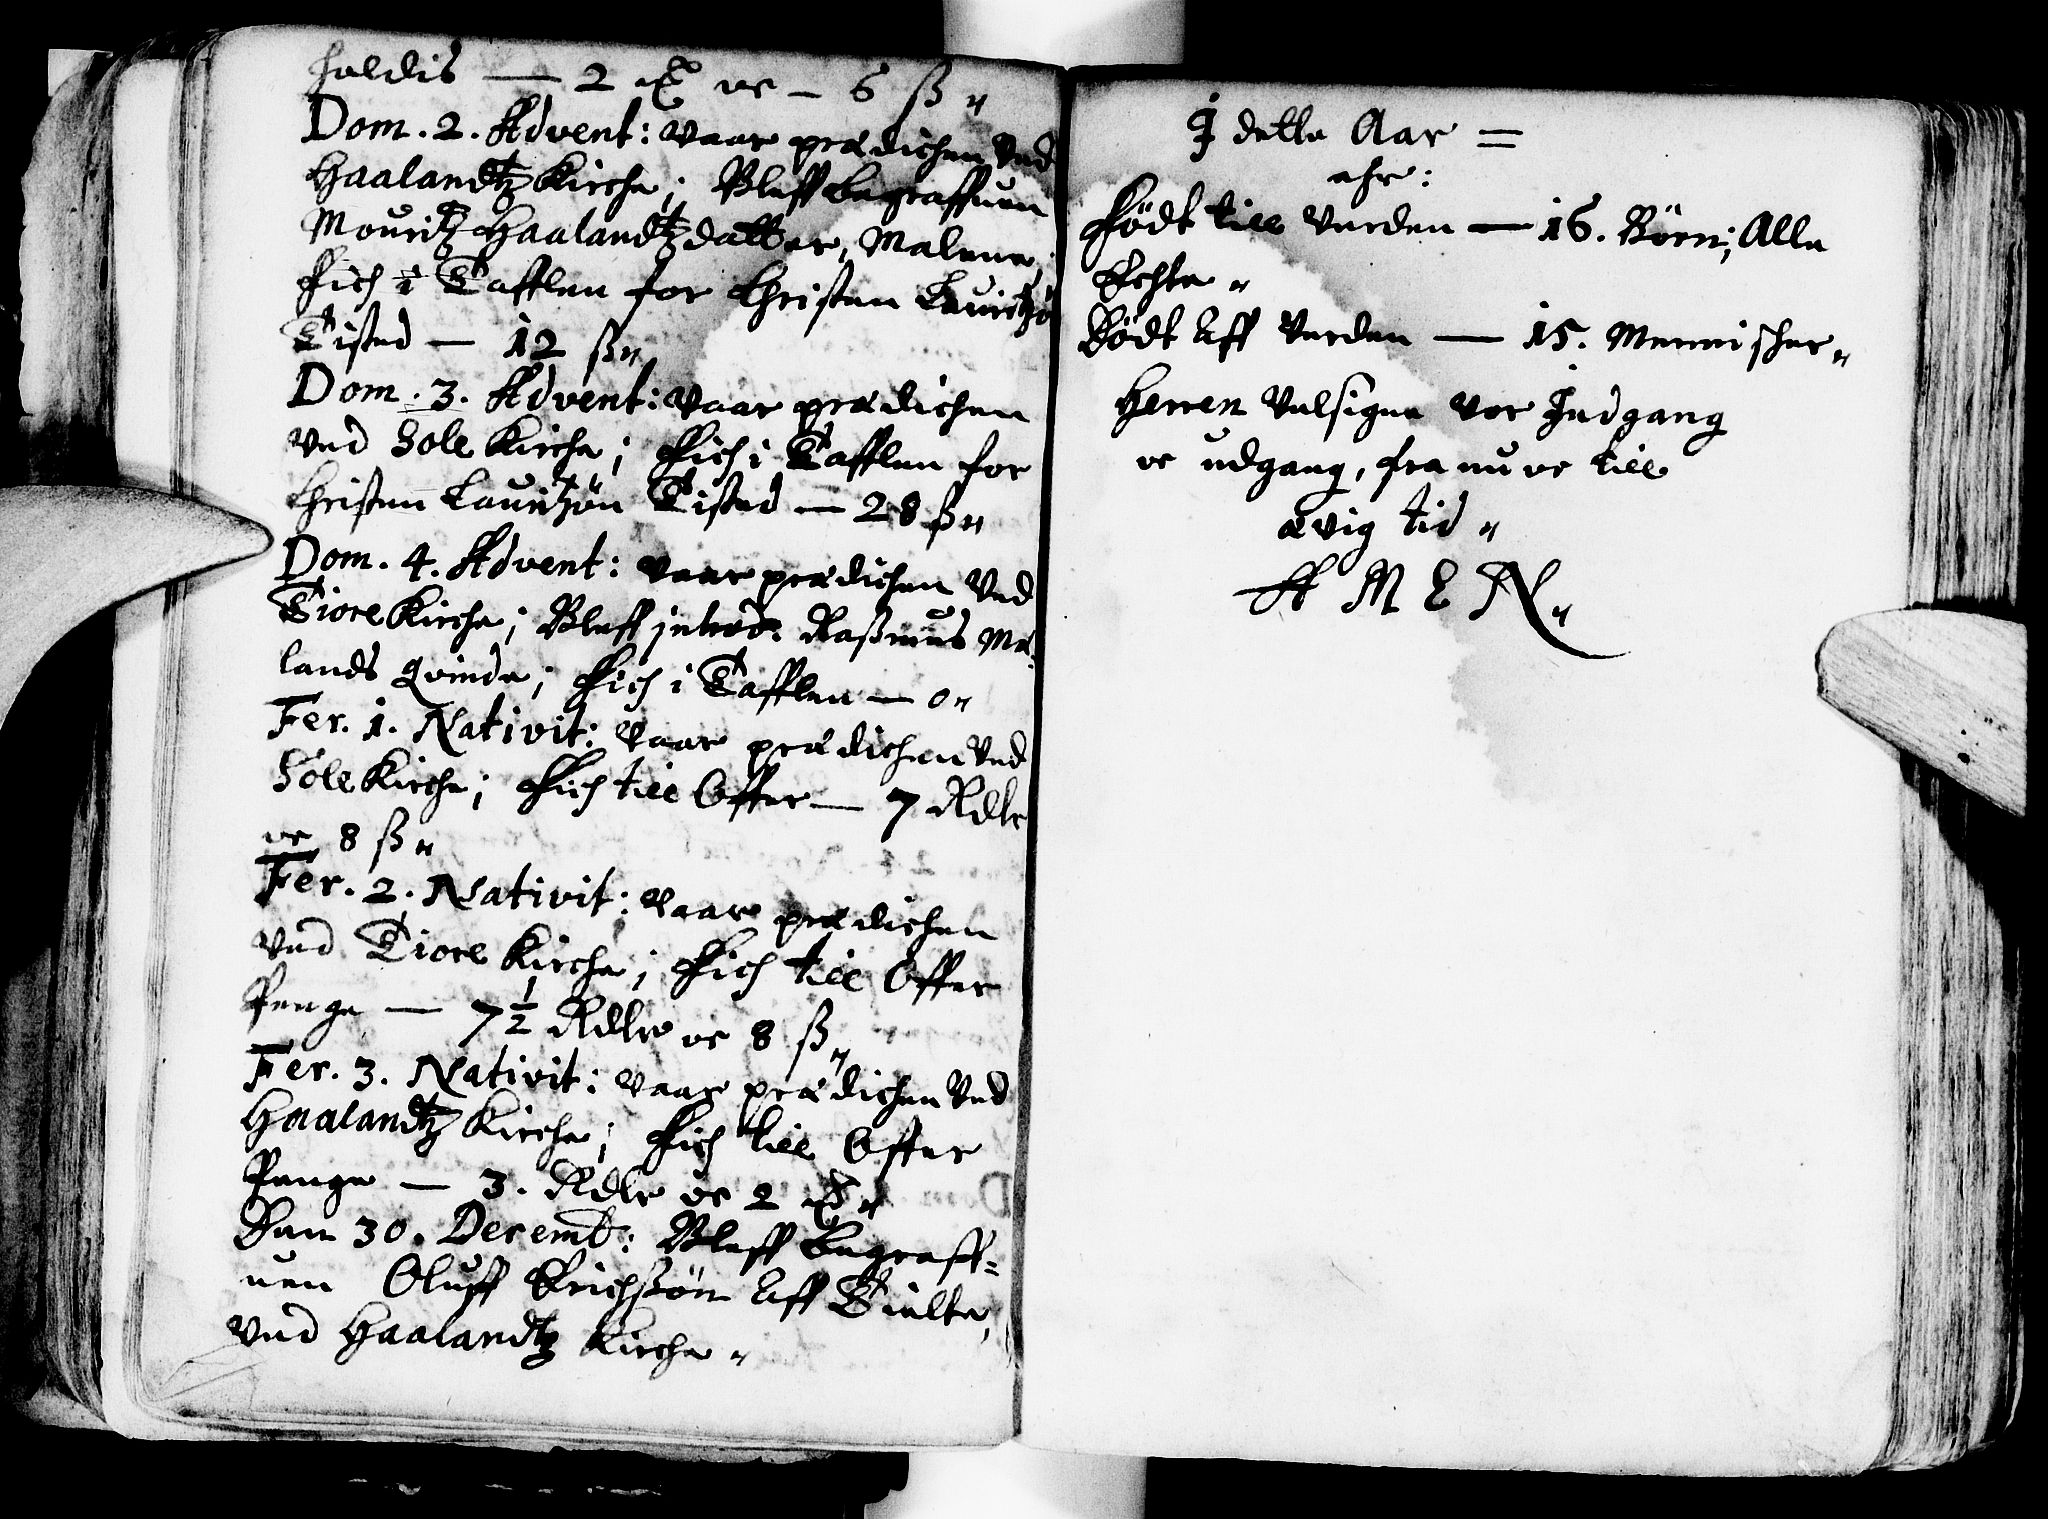 holdis — 2 oc – 6 ß„
Dom. 2. Advent: vaar prædichen Ved
Haalandtz Kirche; Bleff begraffuen
Mouritz Haalandtz datter, Malene,
Fich i Tafflen for Christen Lauritzøn
Tisted — 12 ß„
Dom. 3. Advent: vaar prædichen
Ved Sole Kirche; Fich i Tafflen for
Christen Lauritzøn Tisted — 28 ß„
Dom. 4. Advent: vaar prædichen Ved
Tiore Kirche; Bleff introd: Raßmus Me-
lands Qvinde; Fich i Tafflen — 0„
Fer. 1. Nativit: vaar prædichen Ved
Sole Kirche; Fich till Offer — 7 Rdlr
oc 8 ß„
Fer. 2. Nativit: vaar prædichen
Ved Tiore Kirche; Fich till Offer
Penge — 7½ Rdlr oc 8 ß„
Fer. 3. Nativit: vaar prædichen Ved
Haalandtz Kirche; Fich till Offer
Penge — 3. Rdlr oc 2
Den 30. Decemb: Bleff begraff=
uen Oluff Erichßøn Aff Tielte,
Ved Haalandtz Kirche„
I dette Aar =
ehr:
Født till Verden — 16. Børn; Alle
Echte„
Dødt Aff Verden — 15. Mennischer„
Herren Velsigne vor Indgang
oc udgang, fra nu oc till
ævig tid„
AMEN„